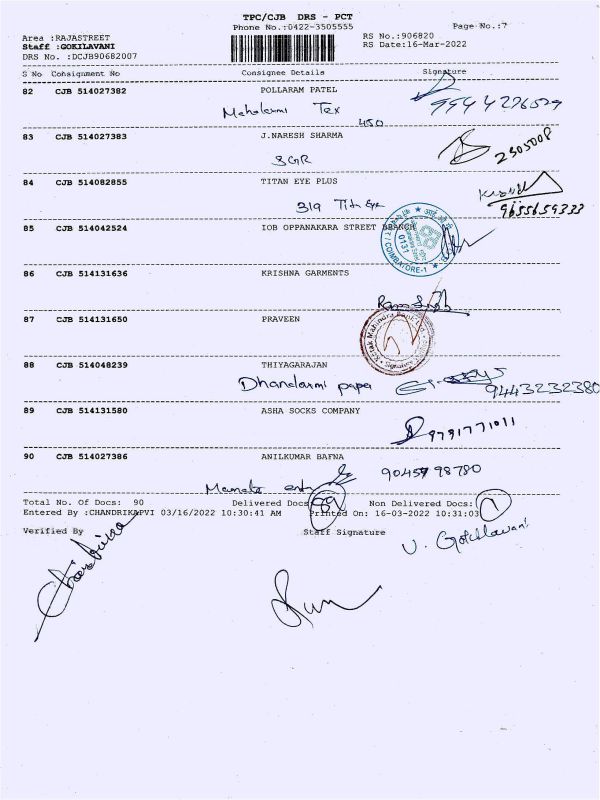 TPC/CJB DRS - PCT
Phone No.:0422-3505555
Page No.:7
Area :RAJASTREET
Staff :GOKILAVANI
DRS No. :DCJB90682007
RS No.:906820
RS Date:16-Mar-2022
S No Consignment No Consignee Details Signature
82 CJB 514027382 POLLARAM PATEL
Mahalaxmi Tex
450
83 CJB 514027383 J.NARESH SHARMA
SGR
2305008
84 CJB 514082855 TITAN EYE PLUS
319 Titn Eye
9655659333
85 CJB 514042524 IOB OPPANAKARA STREET BRANCH
COIMBATORE-1
0131
86 CJB 514131636 KRISHNA GARMENTS
87 CJB 514131650 PRAVEEN
Kotak Mahindra Bank Ltd
88 CJB 514048239 THIYAGARAJAN
Dhanalaxmi papa
9443232380
89 CJB 514131580 ASHA SOCKS COMPANY
9791771011
90 CJB 514027386 ANILKUMAR BAFNA
98780
Total No. Of Docs: 90 Delivered Docs 89 Non Delivered Docs: 1
Entered By :CHANDRIKAPVI 03/16/2022 10:30:41 AM Printed On: 16-03-2022 10:31:03
Verified By Staff Signature
V. Gokilavani